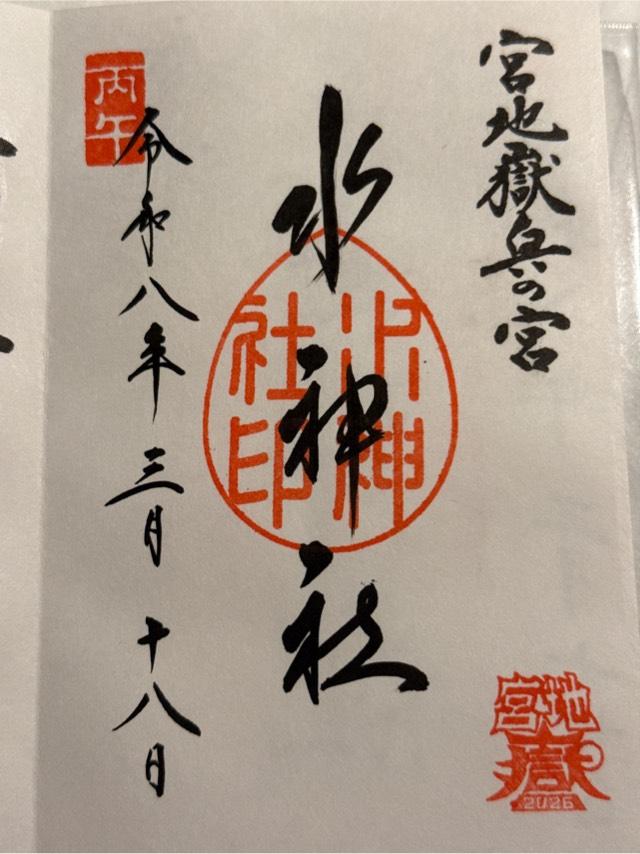 宮地嶽奥の宮
水神社
水神
社印
丙午
令和八年三月十八日
宮地
嶽
2026